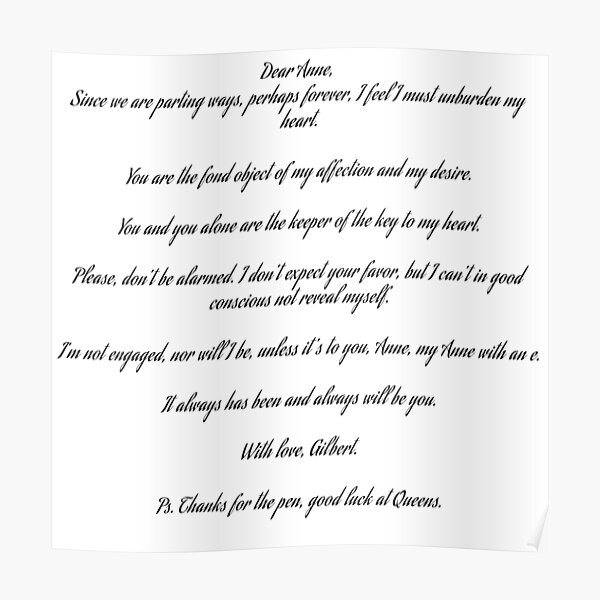 Dear Anne,
Since we are parting ways, perhaps forever, I feel I must unburden my
heart.
You are the fond object of my affection and my desire.
You and you alone are the keeper of the key to my heart.
Please, don't be alarmed. I don't expect your favor, but I can't in good
conscious not reveal myself.
I'm not engaged, nor will I be, unless it's to you, Anne, my Anne with an e.
It always has been and always will be you.
With love, Gilbert.
Ps. Thanks for the pen, good luck at Queens.